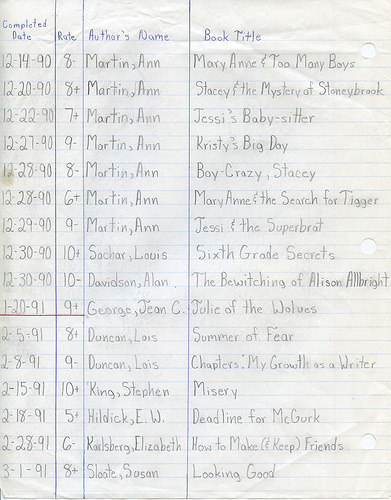 Completed Date Rate Author's Name Book Title
12-14-90 8- Martin, Ann Mary Anne & Too Many Boys
12-20-90 8+ Martin, Ann Stacey & the Mystery at Stoneybrook
12-22-90 7+ Martin, Ann Jessi's Baby-sitter
12-27-90 9- Martin, Ann Kristy's Big Day
12-28-90 8- Martin, Ann Boy-Crazy, Stacey
12-28-90 6+ Martin, Ann Mary Anne & the Search for Tigger
12-29-90 9- Martin, Ann Jessi & the Superbrat
12-30-90 10+ Sachar, Louis Sixth Grade Secrets
12-30-90 10- Davidson, Alan. The Bewitching of Alison Allbright
1-20-91 9+ George, Jean C. Julie of the Wolves
2-5-91 8+ Duncan, Lois Summer of Fear
2-8-91 9- Duncan, Lois Chapters: My Growth as a Writer
2-15-91 10+ King, Stephen Misery
2-18-91 5+ Hildick, E.W. Deadline for McGurk
2-28-91 6- Karlsberg, Elizabeth How to Make (& Keep) Friends
3-1-91 8+ Sloate, Susan Looking Good